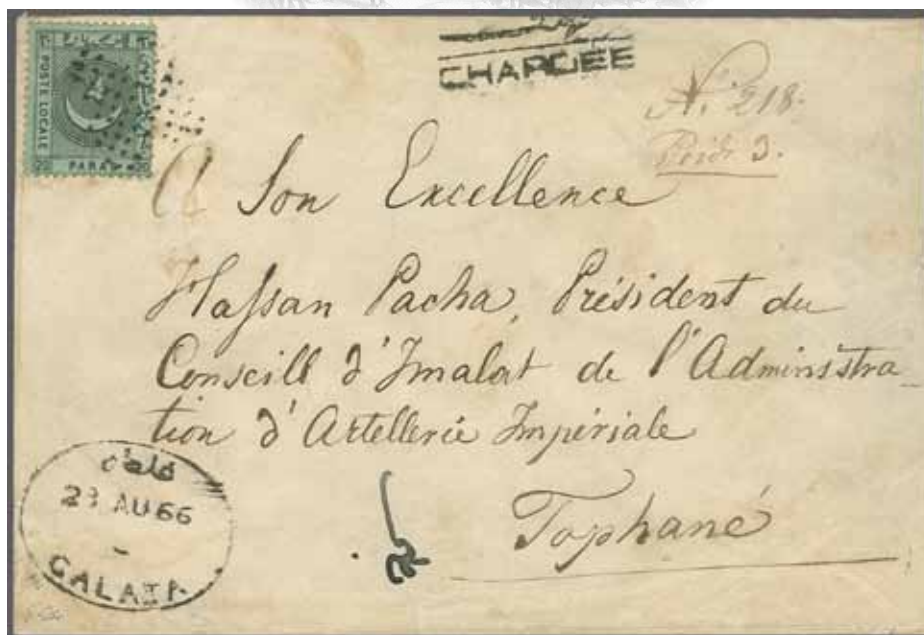 POSTE LOCALE
PARA
20
CHARGEE
No. 218.
Poids 3.
A Son Excellence
Hassan Pacha, Président du
Conseill d'Imalat de l'Administra-
tion d'Artellerie Impériale
Tophané
23 AU 66
GALATA